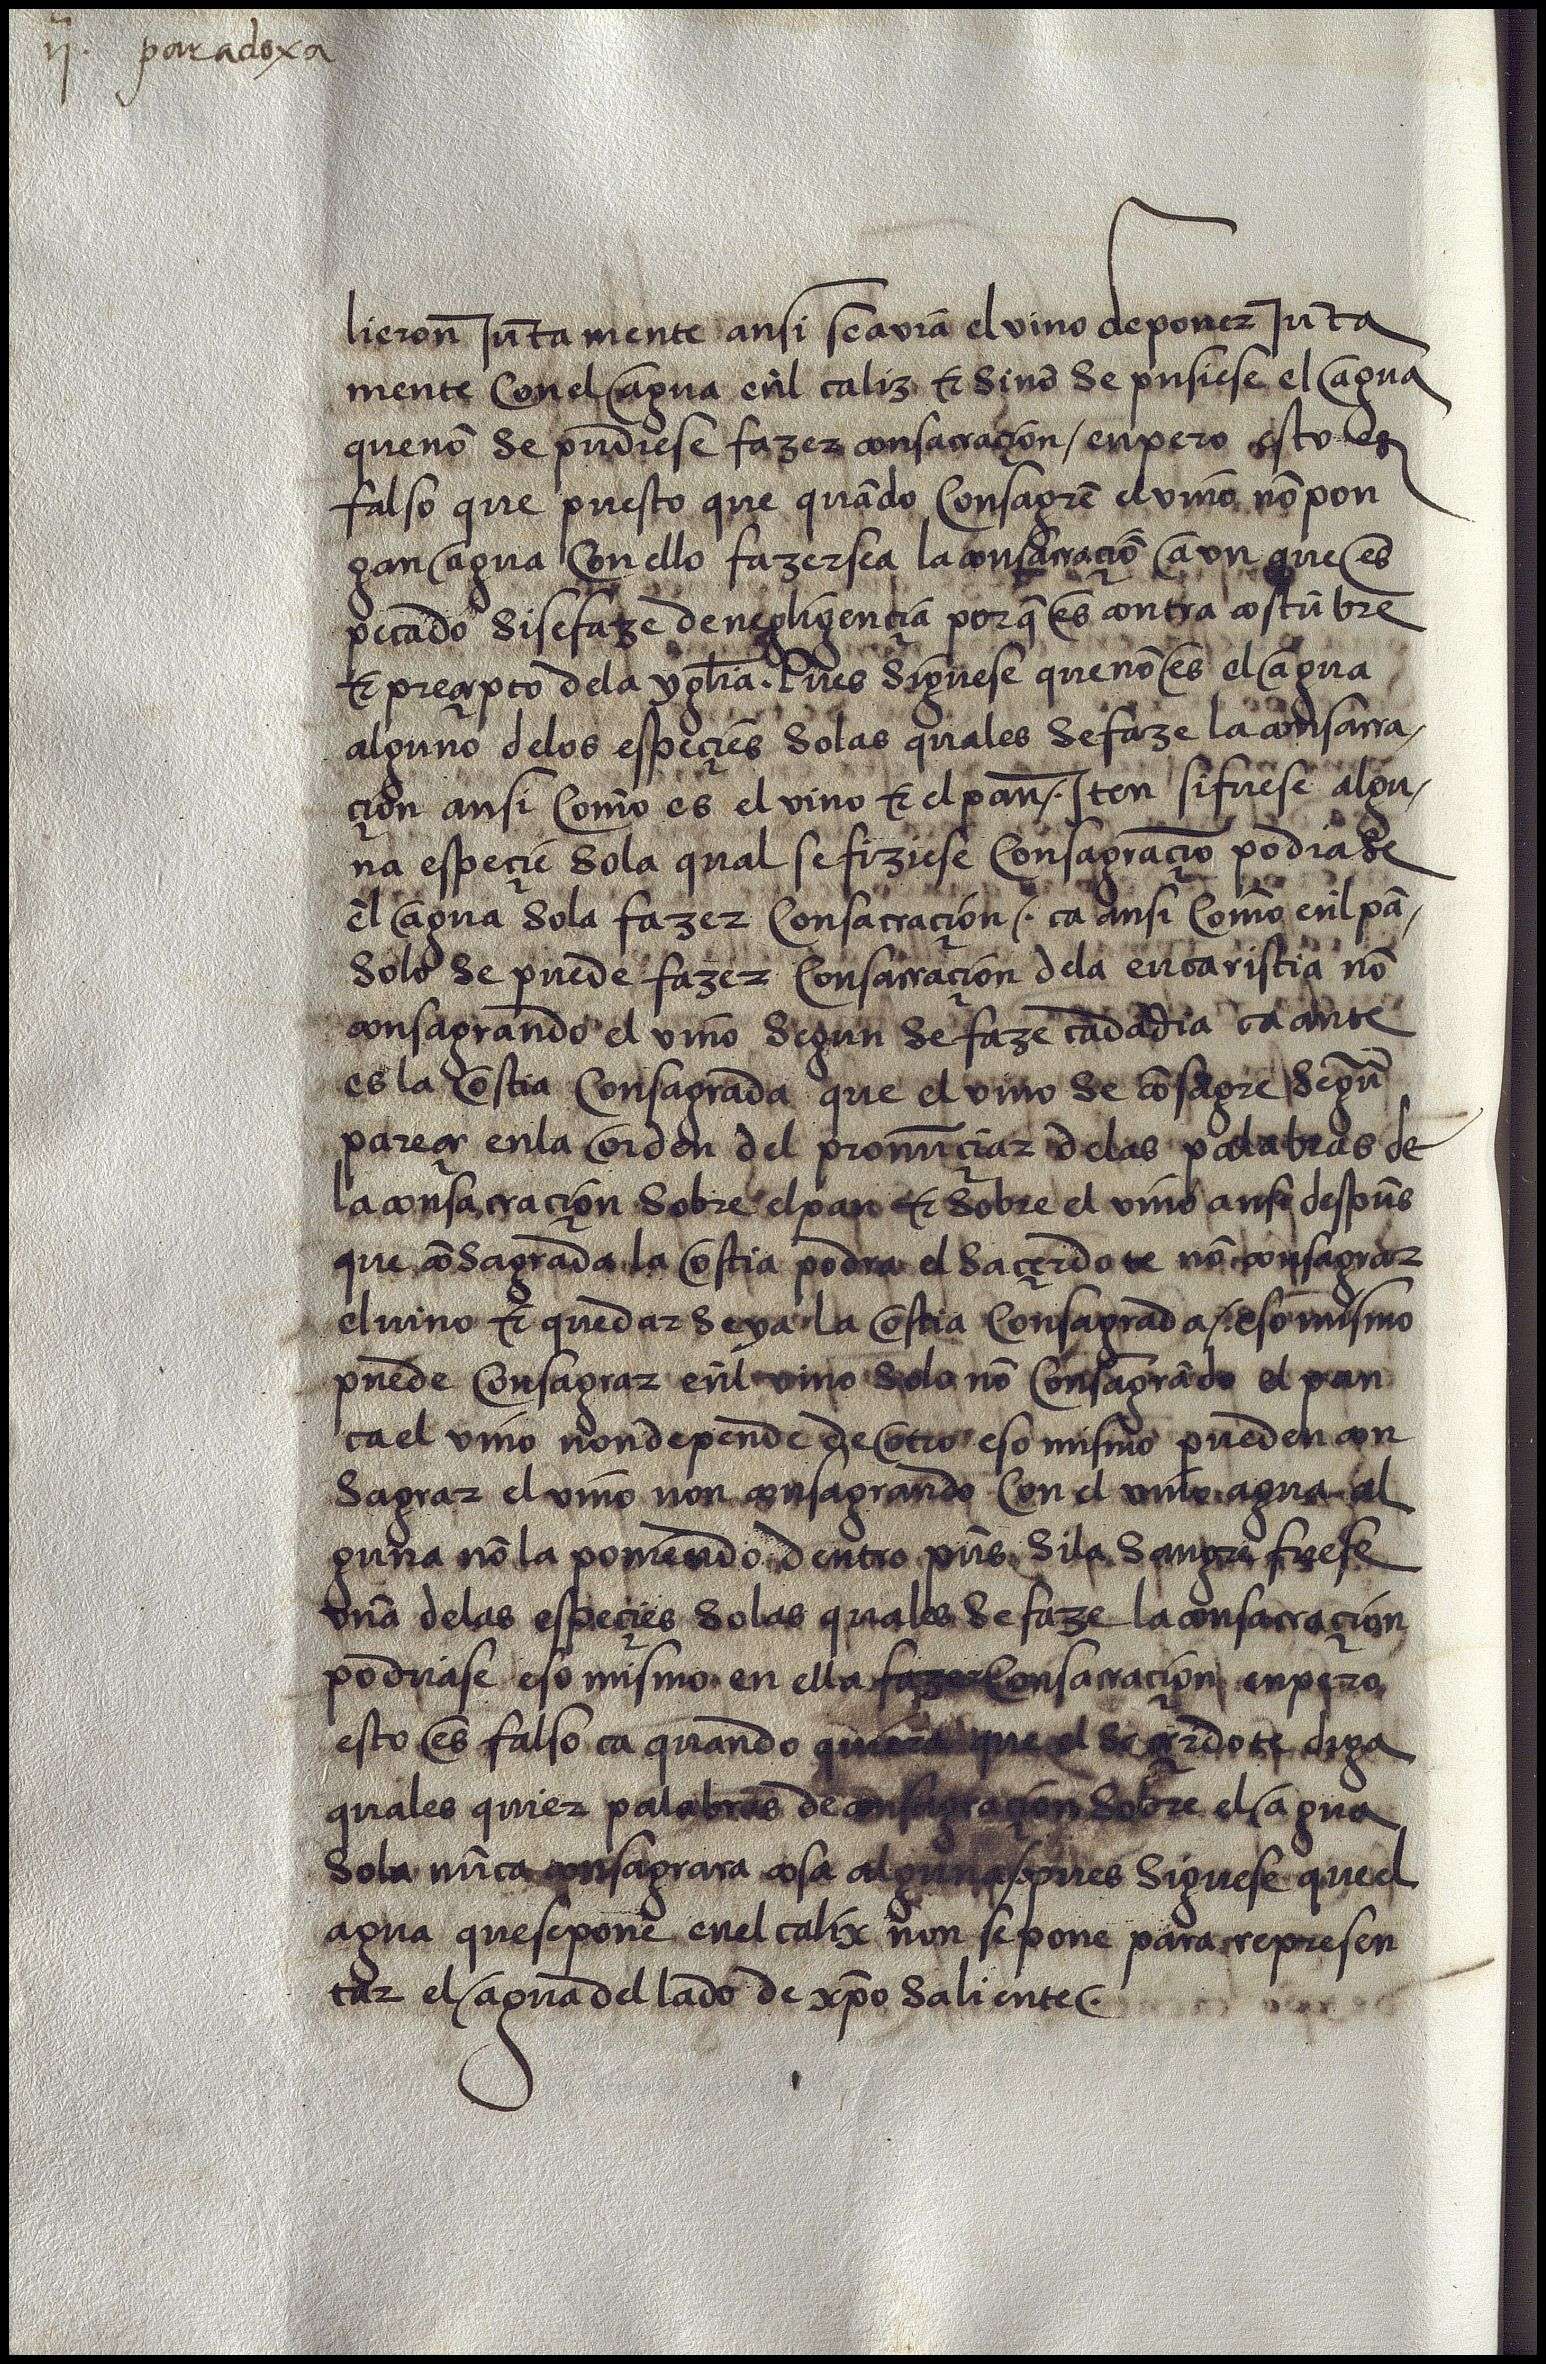 ij. paradoxa
lieron Juntamente ansi se avia el vino de poner Junta
mente con el agua enl caliz & sino se pusiese el agua
que nõ se pudiese fazer consacraçion / enpero esto es
falso que puesto que quãdo consagrẽ el vino nõ pon
gan agua con ello fazersea la consacraçiõ aun que es
pecado si se faze de negligençia porq̃ es contra costũbre
& preçepto dela ygl̃ia. Pues siguese que nõ es el agua
alguno delos espeçies solas quales se faze la consacra
çion ansi como es el vino & el pan /. Iten si fuese algu
na espeçie sola qual se fiziese consagraçio podia se
el agua sola fazer consacraçion /. ca ansi como enl pã
solo se puede fazer consacraçion dela eucaristia nõ
consagrando el vino segun se faze cada dia ca ante
es la ostia consagrada que el vino se cõsagre segũ
pareçe en la orden del pronũçiar delas palabras de
la consacraçion sobre el pan & sobre el vino ansi despũs
que cõsagrada la ostia podra el saçerdote nõ consagrar
el vino & quedar se ya la ostia consagrada /. eso mismo
puede consagrar enl vino solo nõ consagrãdo el pan
ca el vino non depende de otro eso mismo pueden con
sagrar el vino non consagrando con el vino agua al
guna nõ la poniendo dentro pũs si la sangre fuese
una delas espeçies solas quales se faze la consacraçion
podriase eso mismo en ella fazer consacraçion enpero
esto es falso ca quando quiera que el saçerdote diga
quales quier palabras de consagraçion sobre el agua
sola nũca consagrara cosa alguna /. pues siguese que el
agua que se pone en el calix non se pone para represen
tar el agua del lado de xp̃o saliente /.